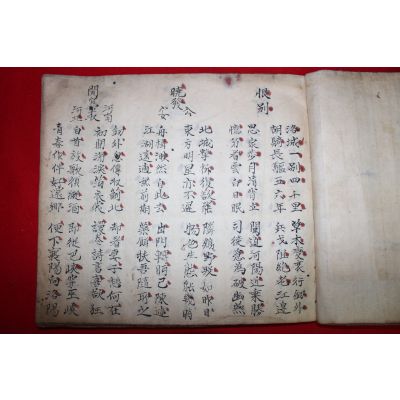 恨别
洛城一別四千里 草木變衰行劒外
胡騎長驅五六年 兵戈阻絶老江邊
思家步月清宵立 聞道河陽近乘勝
憶弟看雲白日眠 司徒急爲破幽燕
曉發公安
北城擊柝復欲罷 隣鷄野哭如昨日
東方明星亦不遲 物色生態能幾時
舟楫渺然自此去 出門轉眄已陳迹
江湖遠適無前期 藥餌扶吾隨所之
聞官軍收河南河北
劒外忽傳收薊北 却看妻子愁何在
初聞涕淚滿衣裳 謾卷詩書喜欲狂
白首放歌須縱酒 即從巴峽穿巫峽
青春作伴好還鄉 便下襄陽向洛陽